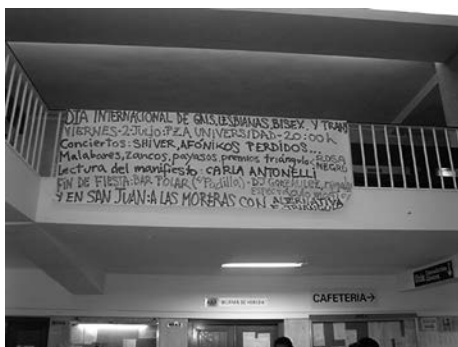 DIA INTERNACIONAL DE GAIS, LESBIANAS, BISEX. Y TRANS
VIERNES-2-JULIO: PZA UNIVERSIDAD-20:00h
Conciertos: SHIVER, AFÓNIKOS PERDIDOS...
Malabares, zancos, payasos, premios triángulo: ROSA NEGRO
Lectura del manifiesto: CARLA ANTONELLI
FIN DE FIESTA: BAR POLAR (Padilla)-DJ
Y EN SAN JUAN: A LAS MORERAS CON ALTERNATIVA
CAFETERIA→